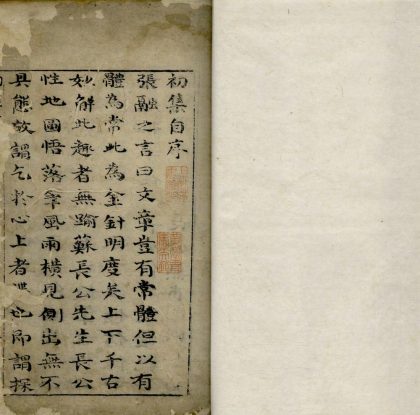 初集自序
張融之言曰文章豈有常體但以有
體為常此為金針明度矣上下千古
妙解此趣者無踰蘇長公先生長公
性地圓悟落筆風雨橫見側出無不
具態故謂乞於心上者也即謂探